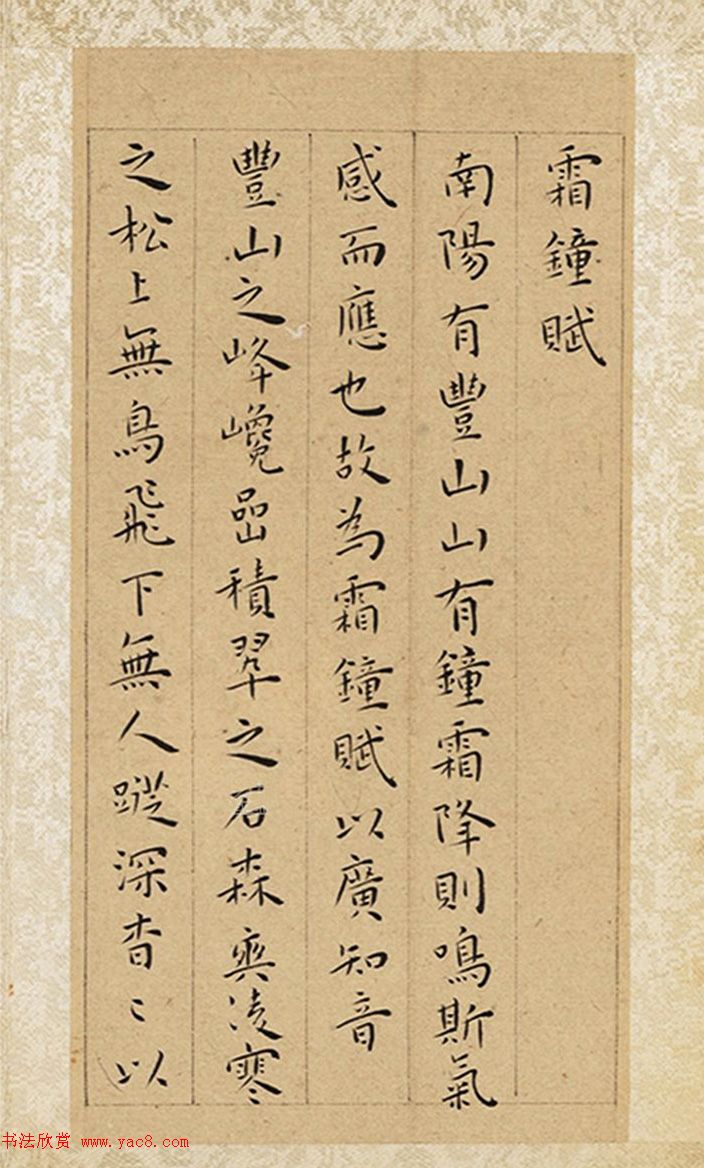 霜鐘賦
南陽有豐山山有鐘霜降則鳴斯氣
感而應也故為霜鐘賦以廣知音
豐山之峰巉嵒積翠之石森爽凌寒
之松上無鳥飛下無人蹤深杳〻以
书法欣赏 www.yac8.com